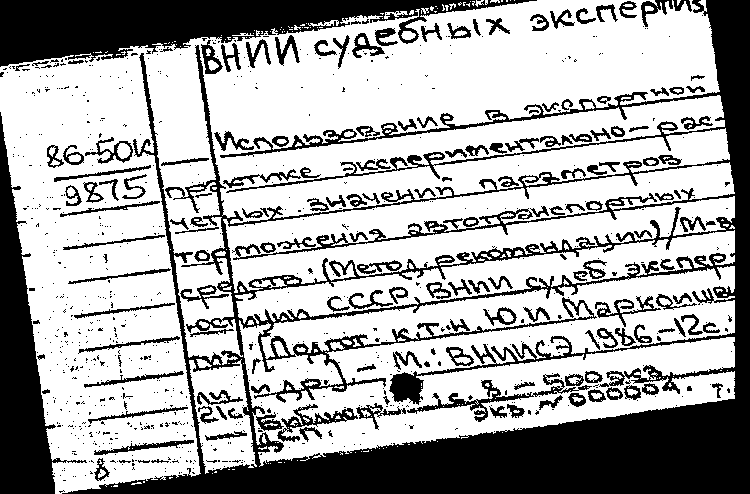 ВНИИ судебных экспертиз
86-50К
9875
Использование в экспертной
практике экспериментально-рас-
четных значений параметров
торможения автотранспортных
средств: (Метод. рекомендации)/М-во
юстиции СССР; ВНИИ судеб. экспер-
тиз; [Подгот.: к.т.н. Ю.И. Маркоишви-
ли и др.]. - М.: ВНИИСЭ, 1986.-12с.
21см.
Библиогр.: с. 8. - 500 экз.
Д.С.П. Экз. № 000004. т.
8